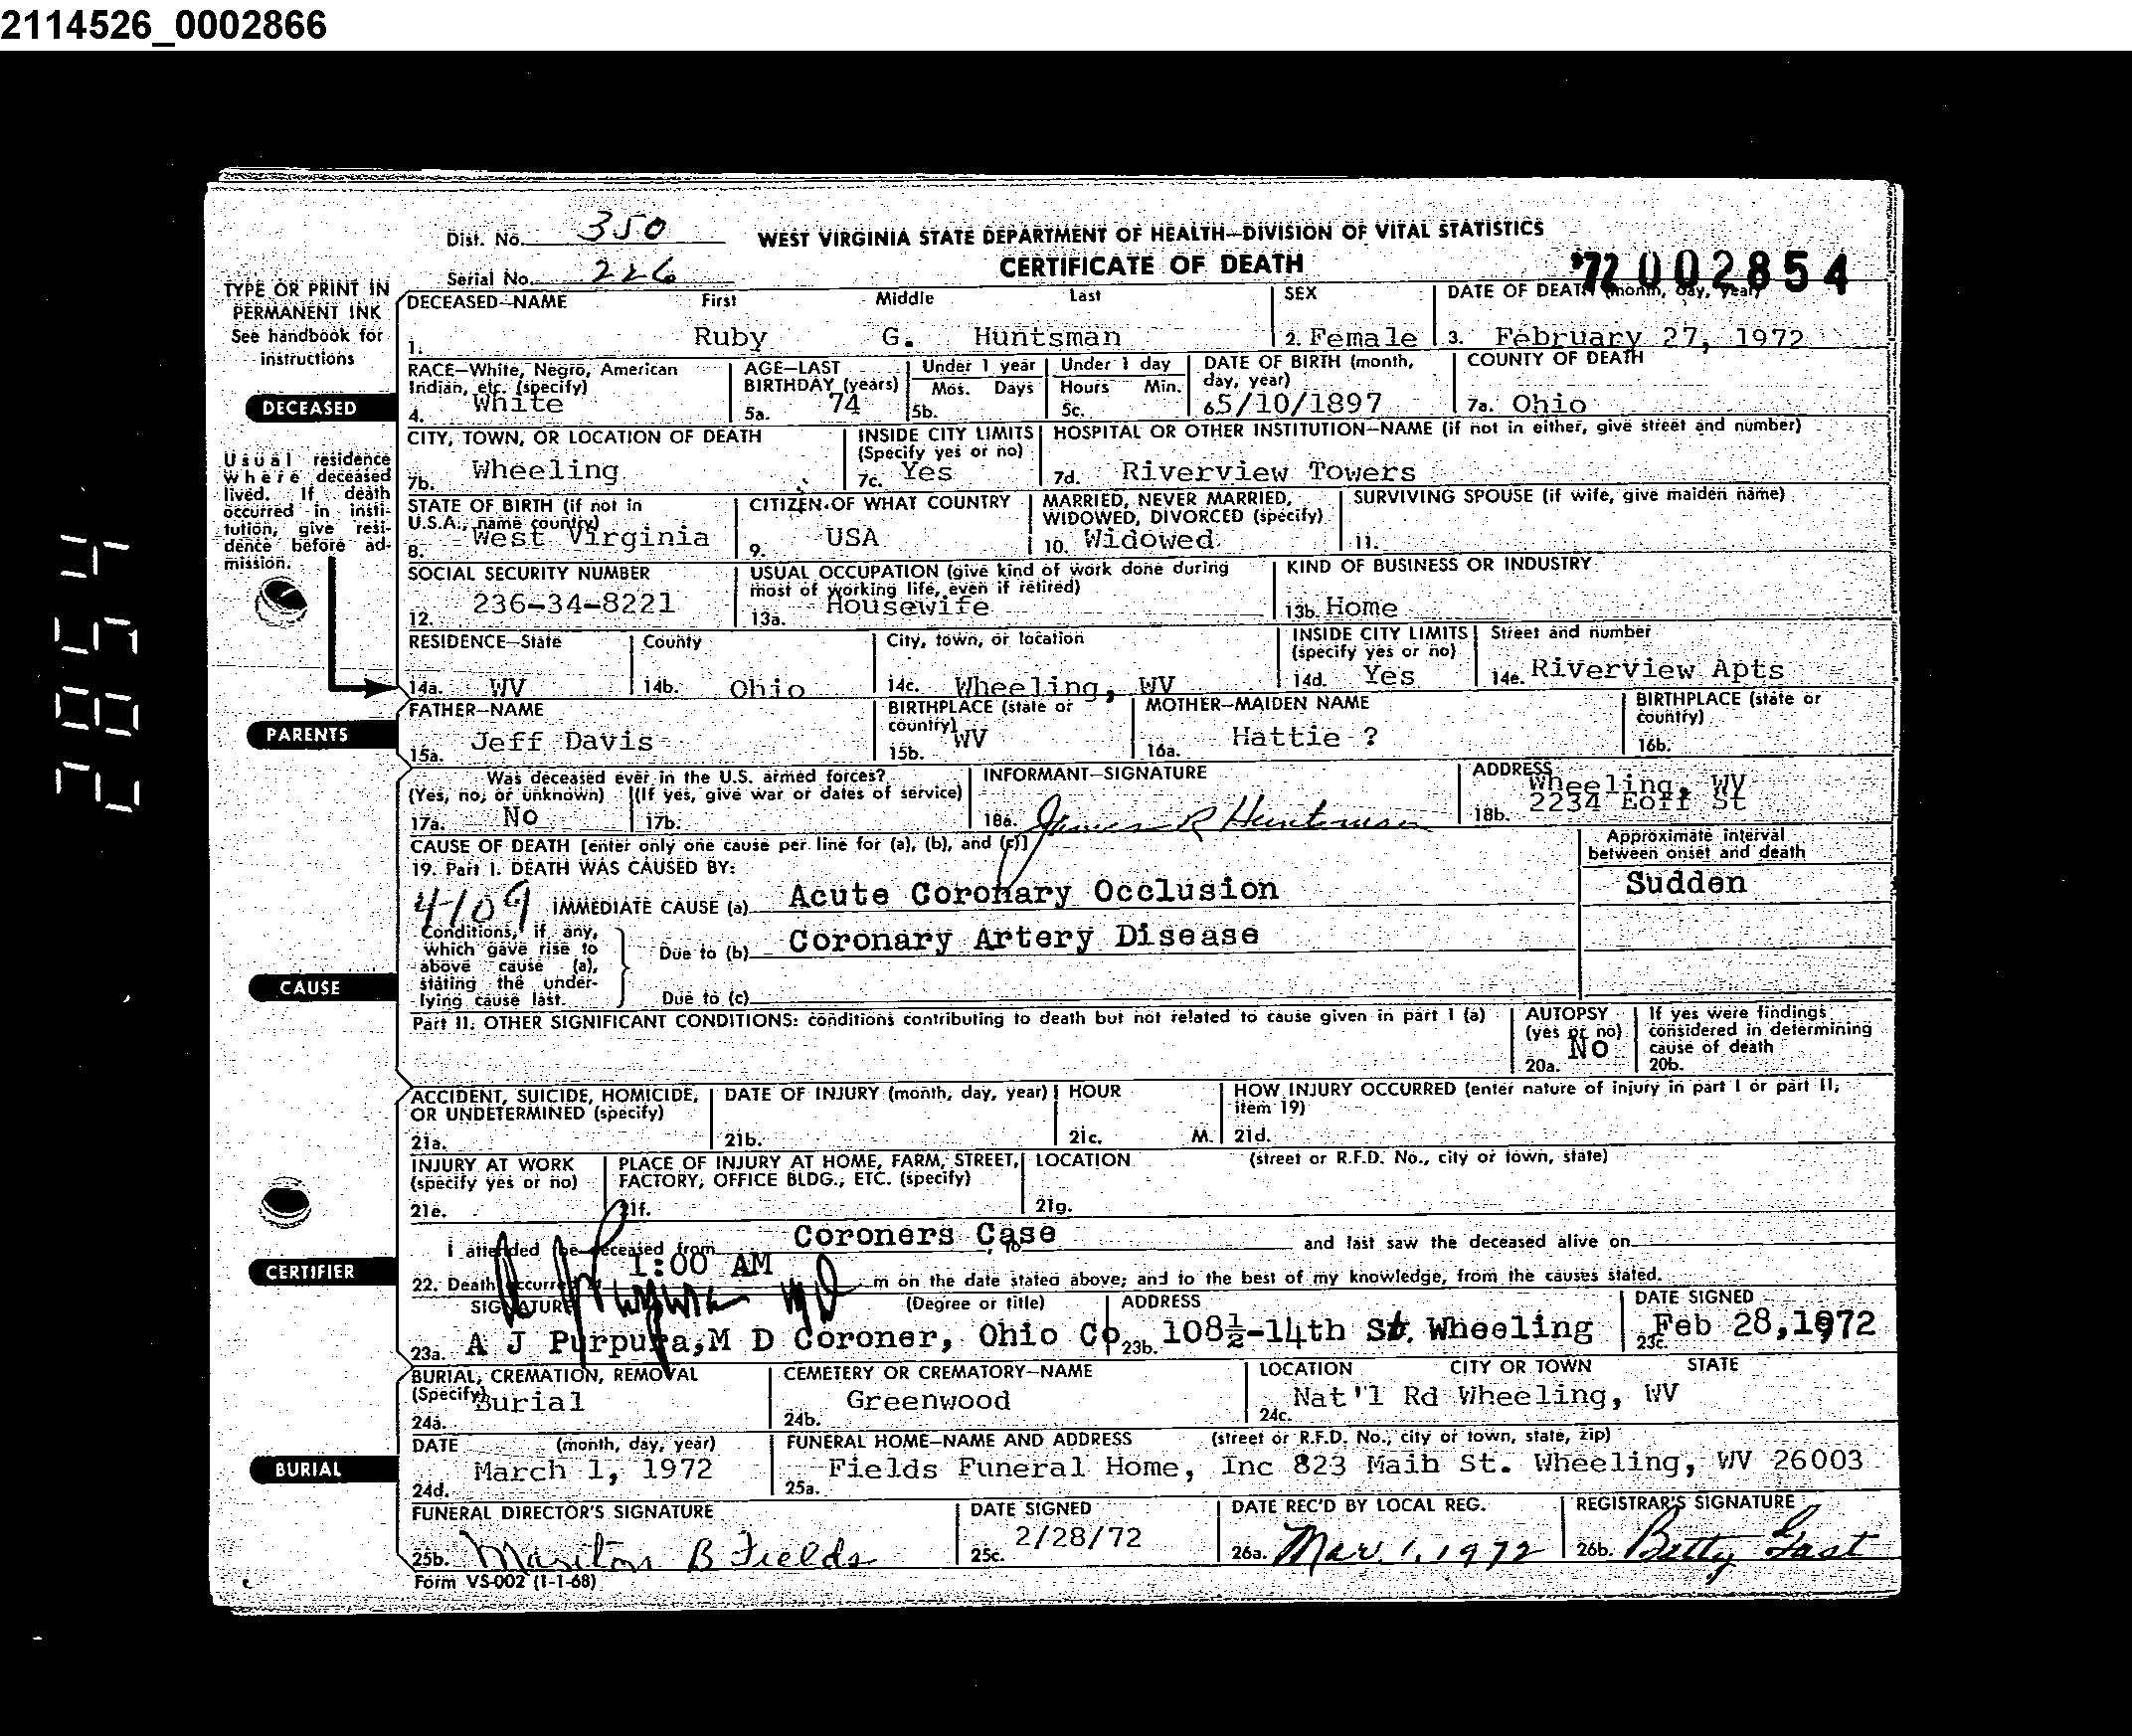 2114526_0002866
Dist. No. 350
WEST VIRGINIA STATE DEPARTMENT OF HEALTH—DIVISION OF VITAL STATISTICS
Serial No. 226
CERTIFICATE OF DEATH
'72 002854
TYPE OR PRINT IN
PERMANENT INK
See handbook for
instructions
DECEASED—NAME First Middle Last
1. Ruby G. Huntsman
SEX
2. Female
DATE OF DEATH (month, day, year)
3. February 27, 1972
DECEASED
RACE—White, Negro, American
Indian, etc. (specify)
4. White
AGE—LAST
BIRTHDAY (years)
5a. 74
Under 1 year
Mos. Days
5b.
Under 1 day
Hours Min.
5c.
DATE OF BIRTH (month,
day, year)
6. 5/10/1897
COUNTY OF DEATH
7a. Ohio
Usual residence
where deceased
lived. If death
occurred in insti-
tution, give resi-
dence before ad-
mission.
CITY, TOWN, OR LOCATION OF DEATH
7b. Wheeling
INSIDE CITY LIMITS
(Specify yes or no)
7c. Yes
HOSPITAL OR OTHER INSTITUTION—NAME (if not in either, give street and number)
7d. Riverview Towers
STATE OF BIRTH (if not in
U.S.A., name country)
8. West Virginia
CITIZEN OF WHAT COUNTRY
9. USA
MARRIED, NEVER MARRIED,
WIDOWED, DIVORCED (specify)
10. Widowed
SURVIVING SPOUSE (if wife, give maiden name)
11.
SOCIAL SECURITY NUMBER
12. 236-34-8221
USUAL OCCUPATION (give kind of work done during
most of working life, even if retired)
13a. Housewife
KIND OF BUSINESS OR INDUSTRY
13b. Home
RESIDENCE—State
14a. WV
County
14b. Ohio
City, town, or location
14c. Wheeling, WV
INSIDE CITY LIMITS
(specify yes or no)
14d. Yes
Street and number
14e. Riverview Apts
PARENTS
FATHER—NAME
15a. Jeff Davis
BIRTHPLACE (state or
country)
15b. WV
MOTHER—MAIDEN NAME
16a. Hattie ?
BIRTHPLACE (state or
country)
16b.
Was deceased ever in the U.S. armed forces?
(Yes, no, or unknown) (If yes, give war or dates of service)
17a. No 17b.
INFORMANT—SIGNATURE
18a. James R Huntsman
ADDRESS
Wheeling, WV
18b. 2234 Eoff St
CAUSE OF DEATH [enter only one cause per line for (a), (b), and (c)]
Approximate interval
between onset and death
19. Part I. DEATH WAS CAUSED BY:
4109
IMMEDIATE CAUSE (a) Acute Coronary Occlusion
Sudden
CAUSE
Conditions, if any,
which gave rise to
above cause (a),
stating the under-
lying cause last.
Due to (b) Coronary Artery Disease
Due to (c)
Part II. OTHER SIGNIFICANT CONDITIONS: conditions contributing to death but not related to cause given in part I (a)
AUTOPSY
(yes or no)
20a. No
If yes were findings
considered in determining
cause of death
20b.
ACCIDENT, SUICIDE, HOMICIDE,
OR UNDETERMINED (specify)
21a.
DATE OF INJURY (month, day, year)
21b.
HOUR
21c. M.
HOW INJURY OCCURRED (enter nature of injury in part I or part II,
item 19)
21d.
INJURY AT WORK
(specify yes or no)
21e.
PLACE OF INJURY AT HOME, FARM, STREET,
FACTORY, OFFICE BLDG., ETC. (specify)
21f.
LOCATION (street or R.F.D. No., city or town, state)
21g.
CERTIFIER
I attended the deceased from Coroners Case, to and last saw the deceased alive on
22. Death occurred 1:00 AM m on the date stated above; and to the best of my knowledge, from the causes stated.
SIGNATURE (Degree or title)
23a. A J Purpura, M D Coroner, Ohio Co
ADDRESS
23b. 108½-14th St. Wheeling
DATE SIGNED
23c. Feb 28, 1972
BURIAL
BURIAL, CREMATION, REMOVAL
(Specify)
24a. Burial
CEMETERY OR CREMATORY—NAME
24b. Greenwood
LOCATION CITY OR TOWN STATE
24c. Nat'l Rd Wheeling, WV
DATE (month, day, year)
24d. March 1, 1972
FUNERAL HOME—NAME AND ADDRESS (street or R.F.D. No., city or town, state, zip)
25a. Fields Funeral Home, Inc 823 Main St. Wheeling, WV 26003
FUNERAL DIRECTOR'S SIGNATURE
25b. B Fields
DATE SIGNED
25c. 2/28/72
DATE REC'D BY LOCAL REG.
26a. Mar. 1, 1972
REGISTRAR'S SIGNATURE
26b. Betty Gast
Form VS-002 (1-1-68)